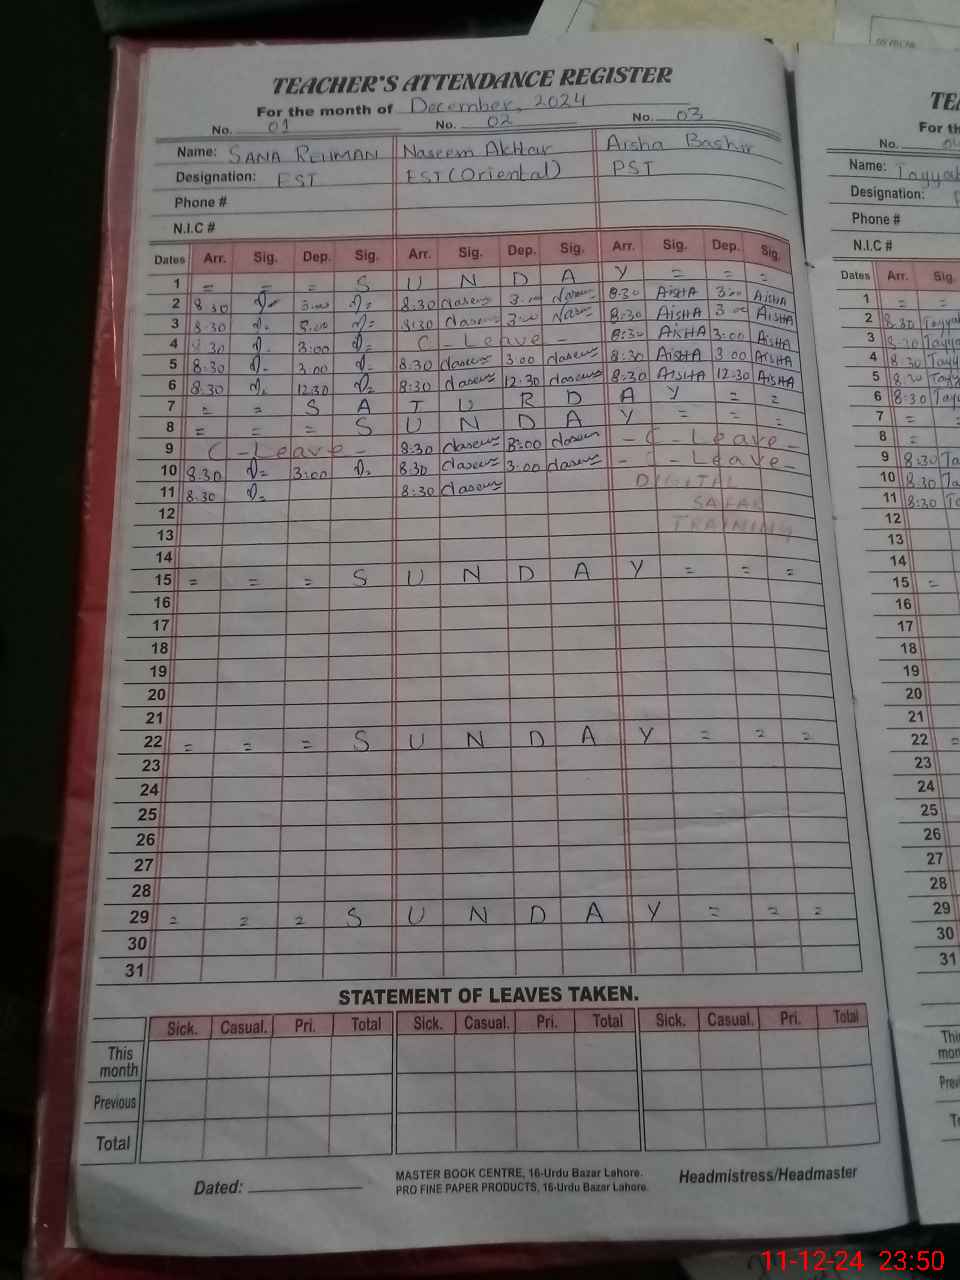 TEACHER'S ATTENDANCE REGISTER
For the month of December, 2024
No. 01 No. 02 No. 03
Name: SANA REHMAN Naseem Akhtar Aisha Bashir
Designation: EST EST (Oriental) PST
Phone #
N.I.C #
Dates Arr. Sig. Dep. Sig. Arr. Sig. Dep. Sig. Arr. Sig. Dep. Sig.
1 = = = S U N D A Y = = =
2 8:30 3:00 8:30 3:00 8:30 AISHA 3:00 AISHA
3 8:30 3:00 8:30 3:00 8:30 AISHA 3:00 AISHA
4 8:30 3:00 C - Leave - 8:30 AISHA 3:00 AISHA
5 8:30 3:00 8:30 3:00 8:30 AISHA 3:00 AISHA
6 8:30 12:30 8:30 12:30 8:30 AISHA 12:30 AISHA
7 = = S A T U R D A Y = =
8 = = = S U N D A Y = = =
9 C - Leave - 8:30 3:00 - C - Leave -
10 8:30 3:00 8:30 3:00 - C - Leave -
11 8:30 8:30 DIGITAL
12 SAFAR
13 TRAINING
14
15 = = = S U N D A Y = = =
16
17
18
19
20
21
22 = = = S U N D A Y = = =
23
24
25
26
27
28
29 = = = S U N D A Y = = =
30
31
STATEMENT OF LEAVES TAKEN.
Sick. Casual. Pri. Total Sick. Casual. Pri. Total Sick. Casual. Pri. Total
This
month
Previous
Total
Dated:
MASTER BOOK CENTRE, 16-Urdu Bazar Lahore.
PRO FINE PAPER PRODUCTS, 16-Urdu Bazar Lahore.
Headmistress/Headmaster
No.
Name:
Designation:
Phone #
N.I.C #
Dates Arr. Sig.
1 = =
2 8:30
3 8:30
4 8:30
5 8:30
6 8:30
7 = =
8 =
9 8:30
10 8:30
11 8:30
12
13
14
15 =
16
17
18
19
20
21
22 =
23
24
25
26
27
28
29
30
31
11-12-24 23:50